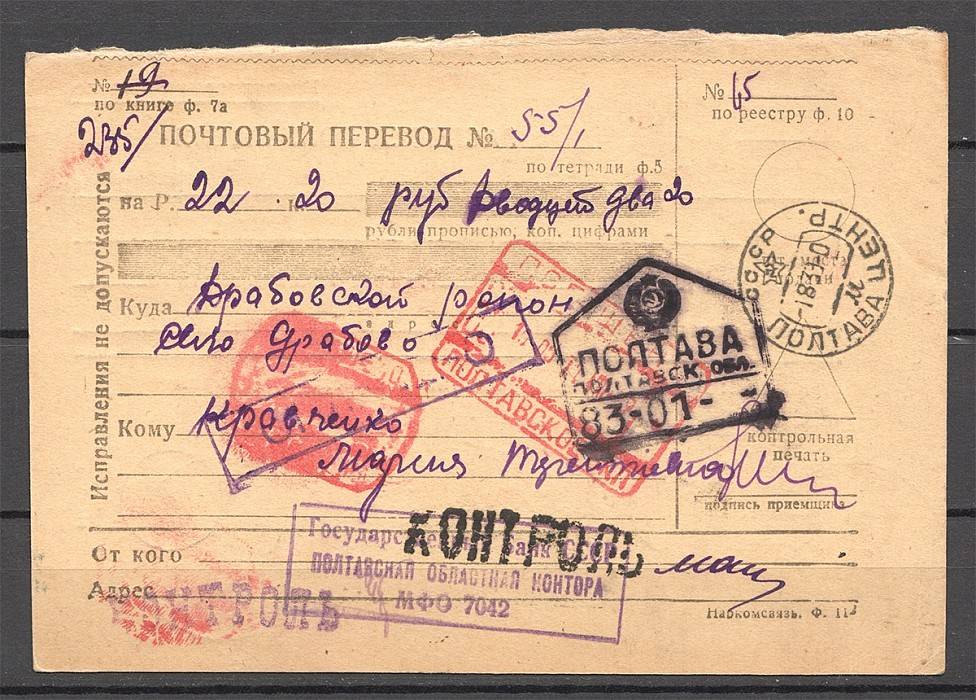 № 19
по книге ф. 7а
235/
ПОЧТОВЫЙ ПЕРЕВОД № 55/1
по тетради ф.5
№ 45
по реестру ф. 10
Исправления не допускаются
на Р. 22 20 руб Двадцет два 20
рубли прописью, коп. цифрами
Куда Драбовской район
село Драбово
Кому Кравченко
Мария
контрольная
печать
подпись приемщика
ПОЛТАВА ЦЕНТР.
СССР
ПОЛТАВА
ПОЛТАВСК. ОБЛ.
83-01-
ПОЛТАВСКО
Государственный Банк СССР
ПОЛТАВСКАЯ ОБЛАСТНАЯ КОНТОРА
МФО 7042
КОНТРОЛЬ
От кого
Адрес
КОНТРОЛЬ
Наркомсвязь. Ф. 113